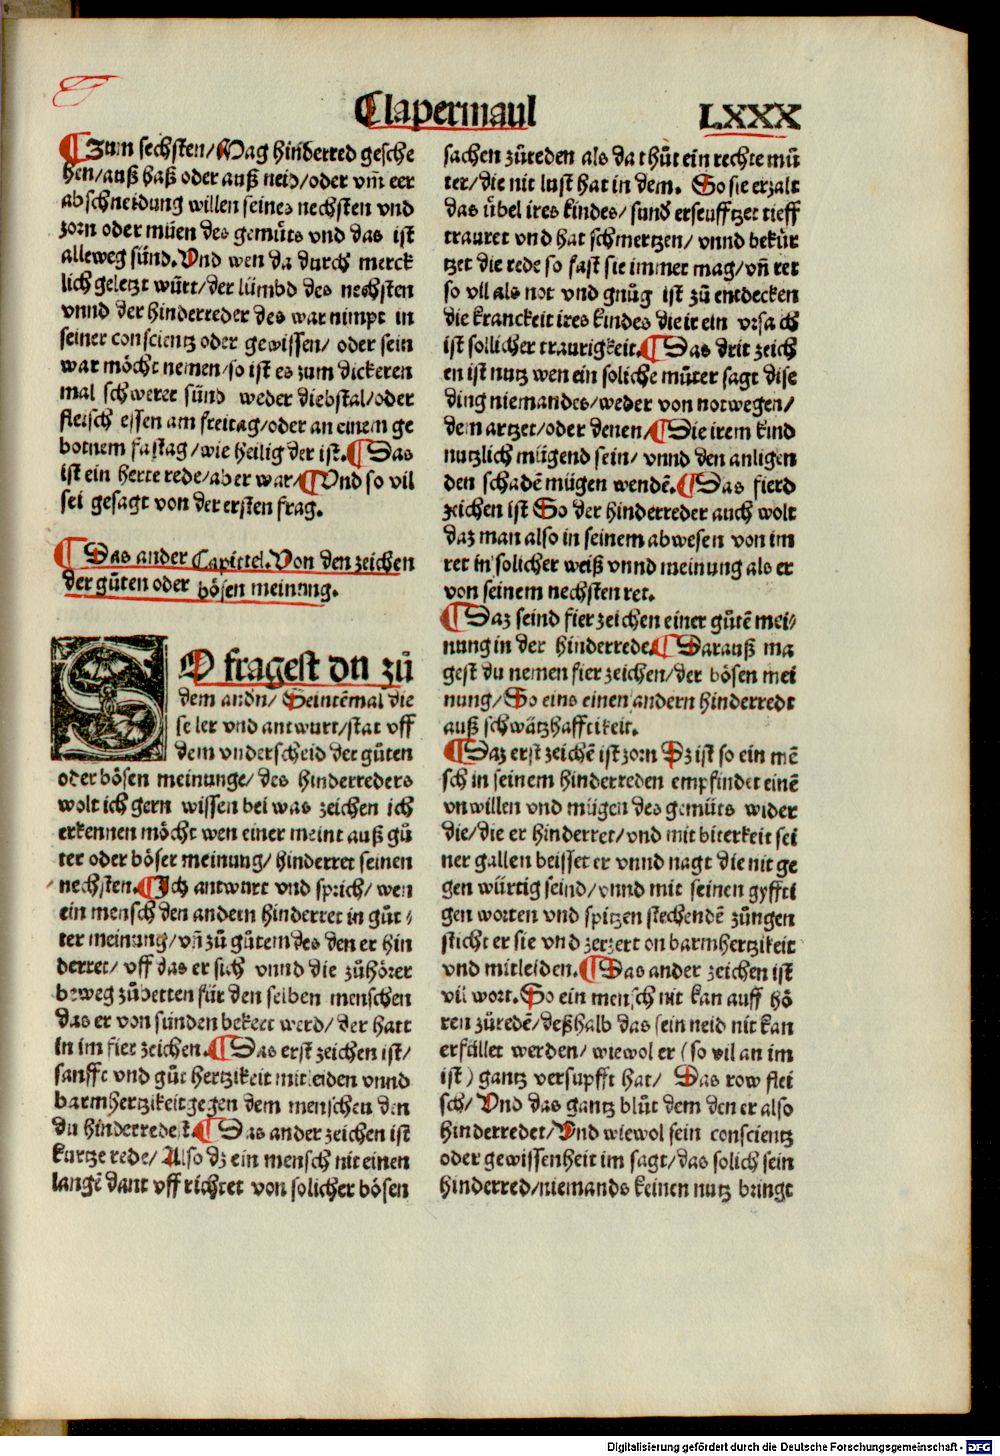 Clapermaul
LXXX
Zum sechsten/ Mag hinderred gesche
hen/auß haß oder auß neid/oder vm̃ eer
abschneidung willen seines nechsten vnd
zorn oder müen des gemüts vnd das ist
alleweg sünd. Vnd wen da durch merck
lich geletzt würt/der lümbd des nechsten
vnnd der hinderreder des war nimpt in
seiner conscientz oder gewissen/ oder sein
war möcht nemen/so ist es zum dickeren
mal schwerer sünd weder diebstal/oder
fleisch essen am freitag/oder an einem ge
botnem fastag/wie heilig der ist. Das
ist ein herte rede/aber war/ Vnd so vil
sei gesagt von der ersten frag.
Das ander Capittel. Von den zeichen
der gůten oder bösen meinung.
SO fragest du zů
dem andn/ Seintēmal die
seler vnd antwurt/stat vff
dem vnderscheid der gůten
oder bösen meinunge/ des hinderreders
wolt ich gern wissen bei was zeichen ich
erkennen möcht wen einer meint auß gů
ter oder böser meinung/ hinderret seinen
nechsten. Ich antwurt vnd sprich/ wen
ein mensch den andern hinderret in gůt/
ter meinung/vñ zů gůtem des den er hin
derret/ vff das er sich vnnd die zůhörer
beweg zůbetten für den selben menschen
das er von sünden bekeert werd/ der hatt
in im fier zeichen. Das erst zeichen ist/
sanffte vnd gůt hertzikeit mitleiden vnnd
barmhertzikeit gegen dem menschen den
du hinderredest. Das ander zeichen ist
kurtze rede/ Also dz ein mensch nit einen
langē dant vff richtet von solicher bösen
sachen zůreden als da thůt ein rechte mů
ter/die nit lust hat in dem. So sie erzalt
das übel ires kindes/ sund erseufftzet tieff
trauret vnd hat schmertzen/ vnnd bekür
tzet die rede so fast sie immer mag/vñ ret
so vil als not vnd gnůg ist zů entdecken
die kranckeit ires kindes die ir ein vrsach
ist sollicher traurigkeit. Das drit zeich
en ist nutz wen ein soliche můter sagt dise
ding niemandes/weder von notwegen/
dem artzet/oder denen/ Die irem kind
nutzlich mügend sein/ vnnd den anligen
den schadē mügen wendē. Das fierd
zeichen ist So der hinderreder auch wolt
daz man also in seinem abwesen von im
ret in solicher weiß vnnd meinung als er
von seinem nechsten ret.
Daz seind fier zeichen einer gůtē mei/
nung in der hinderrede Darauß ma
gest du nemen fier zeichen/der bösen mei
nung/ So eins einen andern hinderredt
auß schwätzhafftikeit.
Daz erst zeichē ist zorn Dz ist so ein mē
sch in seinem hinderreden empfindet einē
vnwillen vnd mügen des gemüts wider
die/die er hinderret/vnd mit biterkeit sei
ner gallen beisset er vnnd nagt die nit ge
gen würtig seind/vnnd mit seinen gyffti
gen worten vnd spitzen stechendē zůngen
sticht er sie vnd zerzert on barmhertzikeit
vnd mitleiden. Das ander zeichen ist
vil wort. So ein mensch nit kan auff hö
ren zůredē/deßhalb das sein neid nit kan
erfüllet werden/ wiewol er (so vil an im
ist) gantz versupfft hat/ Das row flei
sch/ Vnd das gantz blůt dem den er also
hinderredet/ Vnd wiewol sein conscientz
oder gewissenheit im sagt/das solich sein
hinderred/niemands keinen nutz bringt
Digitalisierung gefördert durch die Deutsche Forschungsgemeinschaft - DFG